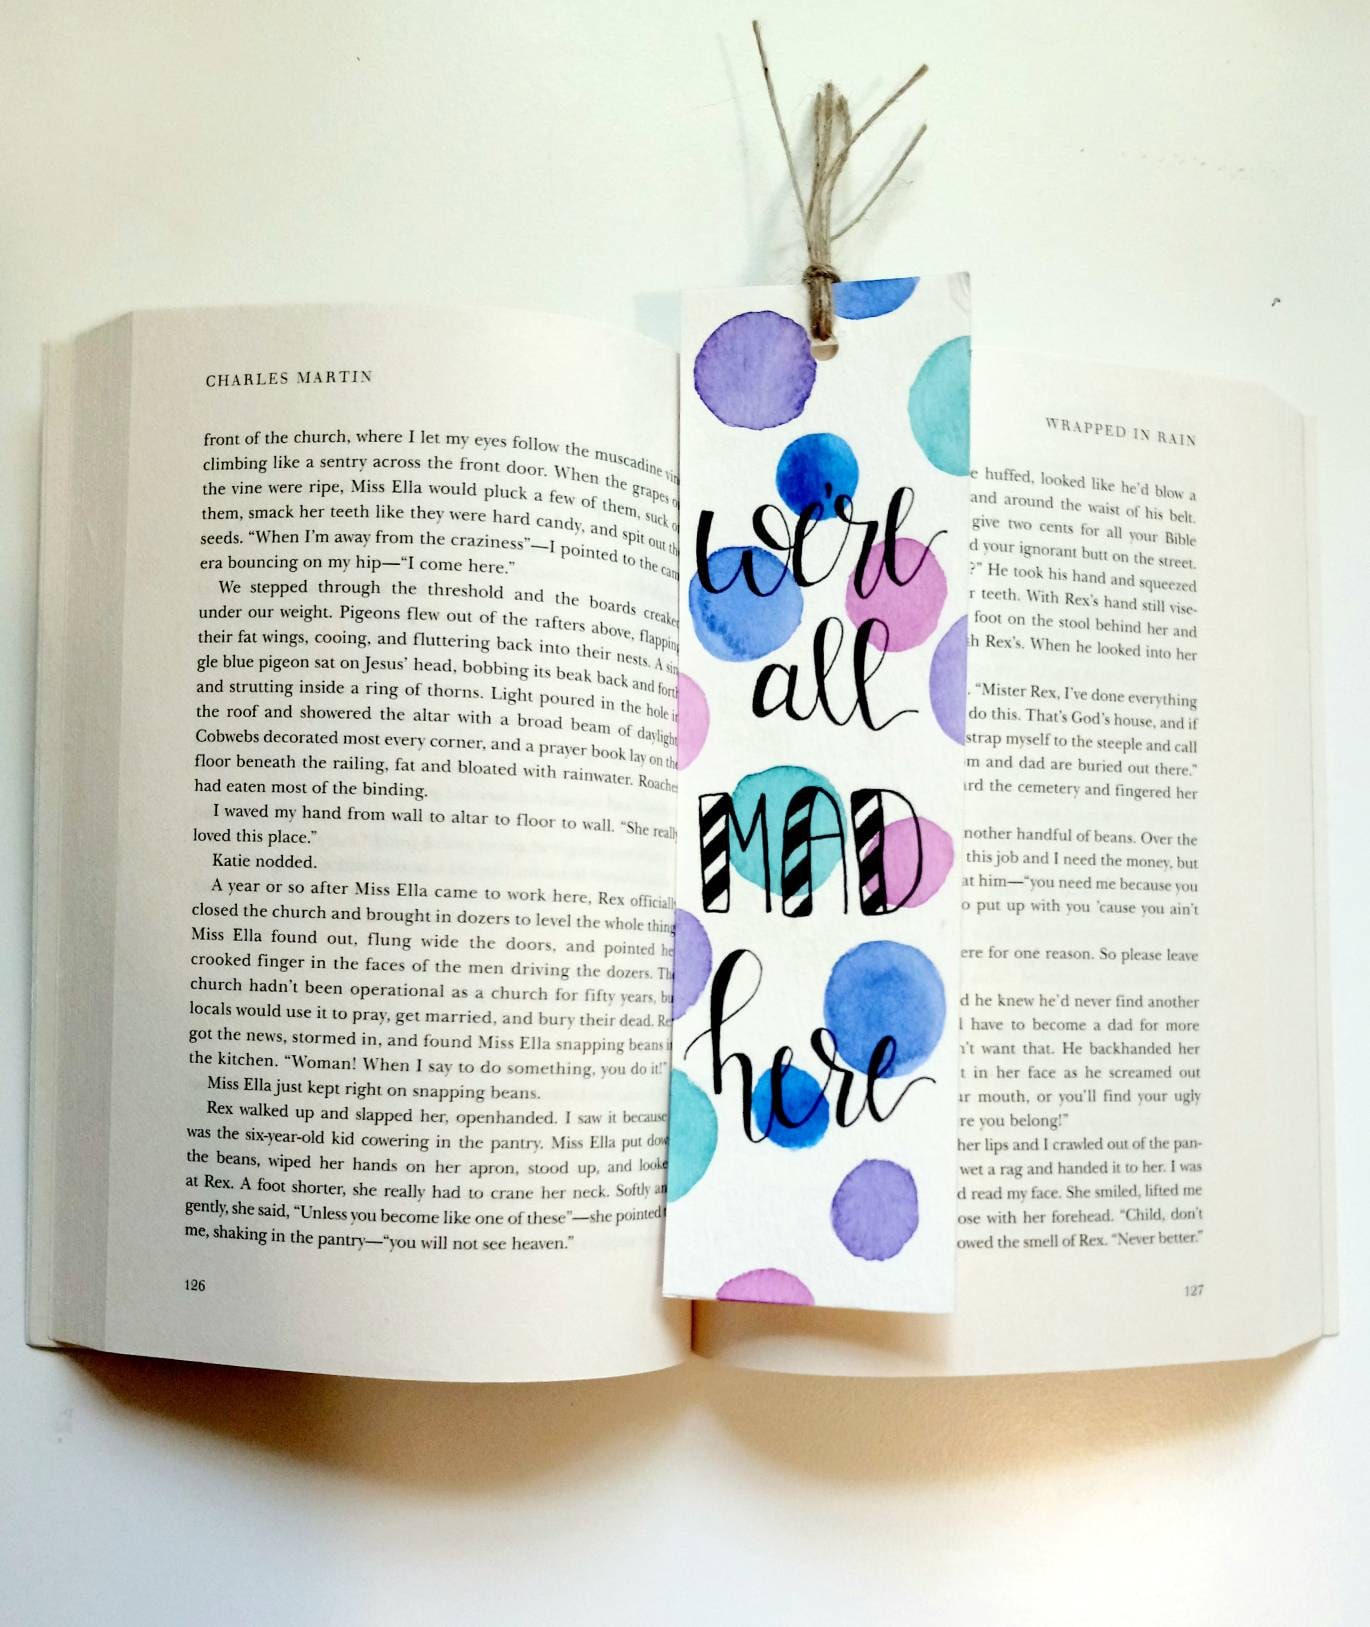 CHARLES MARTIN
front of the church, where I let my eyes follow the muscadine
climbing like a sentry across the front door. When the grapes
the vine were ripe, Miss Ella would pluck a few of them, suck
them, smack her teeth like they were hard candy, and spit out
seeds. “When I’m away from the craziness”—I pointed to the
era bouncing on my hip—“I come here.”
We stepped through the threshold and the boards
under our weight. Pigeons flew out of the rafters above,
their fat wings, cooing, and fluttering back into their nests. A
gle blue pigeon sat on Jesus’ head, bobbing its beak back and
and strutting inside a ring of thorns. Light poured in the hole
the roof and showered the altar with a broad beam of
Cobwebs decorated most every corner, and a prayer book lay on
floor beneath the railing, fat and bloated with rainwater.
had eaten most of the binding.
I waved my hand from wall to altar to floor to wall. “She
loved this place.”
Katie nodded.
A year or so after Miss Ella came to work here, Rex
closed the church and brought in dozers to level the whole
Miss Ella found out, flung wide the doors, and pointed
crooked finger in the faces of the men driving the dozers.
church hadn’t been operational as a church for fifty years,
locals would use it to pray, get married, and bury their dead.
got the news, stormed in, and found Miss Ella snapping beans
the kitchen. “Woman! When I say to do something, you do it!”
Miss Ella just kept right on snapping beans.
Rex walked up and slapped her, openhanded. I saw it because
was the six-year-old kid cowering in the pantry. Miss Ella put
the beans, wiped her hands on her apron, stood up, and
at Rex. A foot shorter, she really had to crane her neck. Softly
gently, she said, “Unless you become like one of these”—she pointed
me, shaking in the pantry—“you will not see heaven.”
126
we're
all
MAD
here
WRAPPED IN RAIN
huffed, looked like he’d blow a
and around the waist of his belt.
give two cents for all your Bible
your ignorant butt on the street.
He took his hand and squeezed
teeth. With Rex’s hand still vise-
foot on the stool behind her and
Rex’s. When he looked into her
“Mister Rex, I’ve done everything
do this. That’s God’s house, and if
strap myself to the steeple and call
and dad are buried out there.”
the cemetery and fingered her
handful of beans. Over the
this job and I need the money, but
at him—“you need me because you
put up with you ’cause you ain’t
for one reason. So please leave
he knew he’d never find another
have to become a dad for more
want that. He backhanded her
in her face as he screamed out
mouth, or you’ll find your ugly
you belong!”
her lips and I crawled out of the pan-
wet a rag and handed it to her. I was
read my face. She smiled, lifted me
with her forehead. “Child, don’t
the smell of Rex. “Never better.”
127